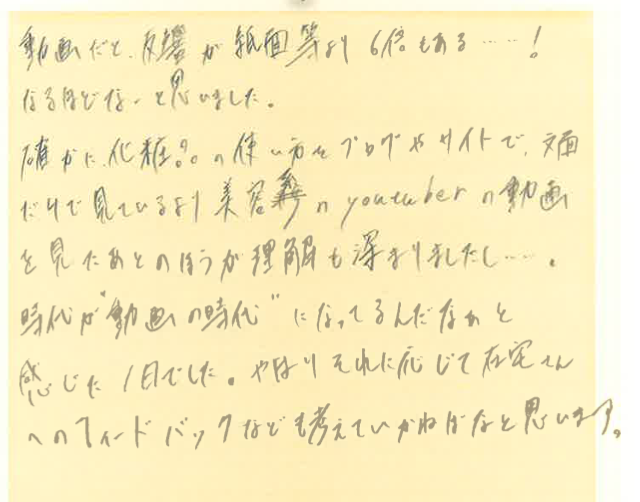 動画だと、反響が紙面等より6倍もある……!
なるほどなーと思いました。
確かに、化粧品の使い方をブログやサイトで、文面
だけで見ているより美容系のyoutuberの動画
を見たあとのほうが理解も深まりましたし……。
時代が"動画の時代"になってるんだなぁと
感じた1日でした。やはりそれに応じて在宅さん
へのフィードバックなども考えていかねばなと思います。